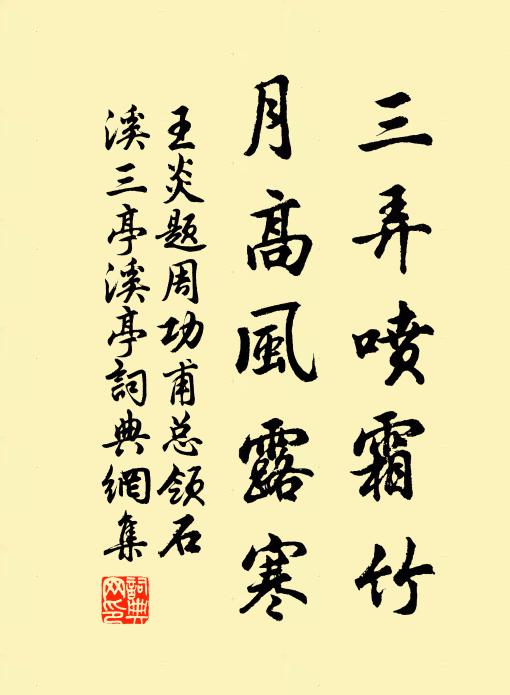 三弄喷霜竹
月高風露寒
王炎题周功甫总领石
溪三亭溪亭詞典網集